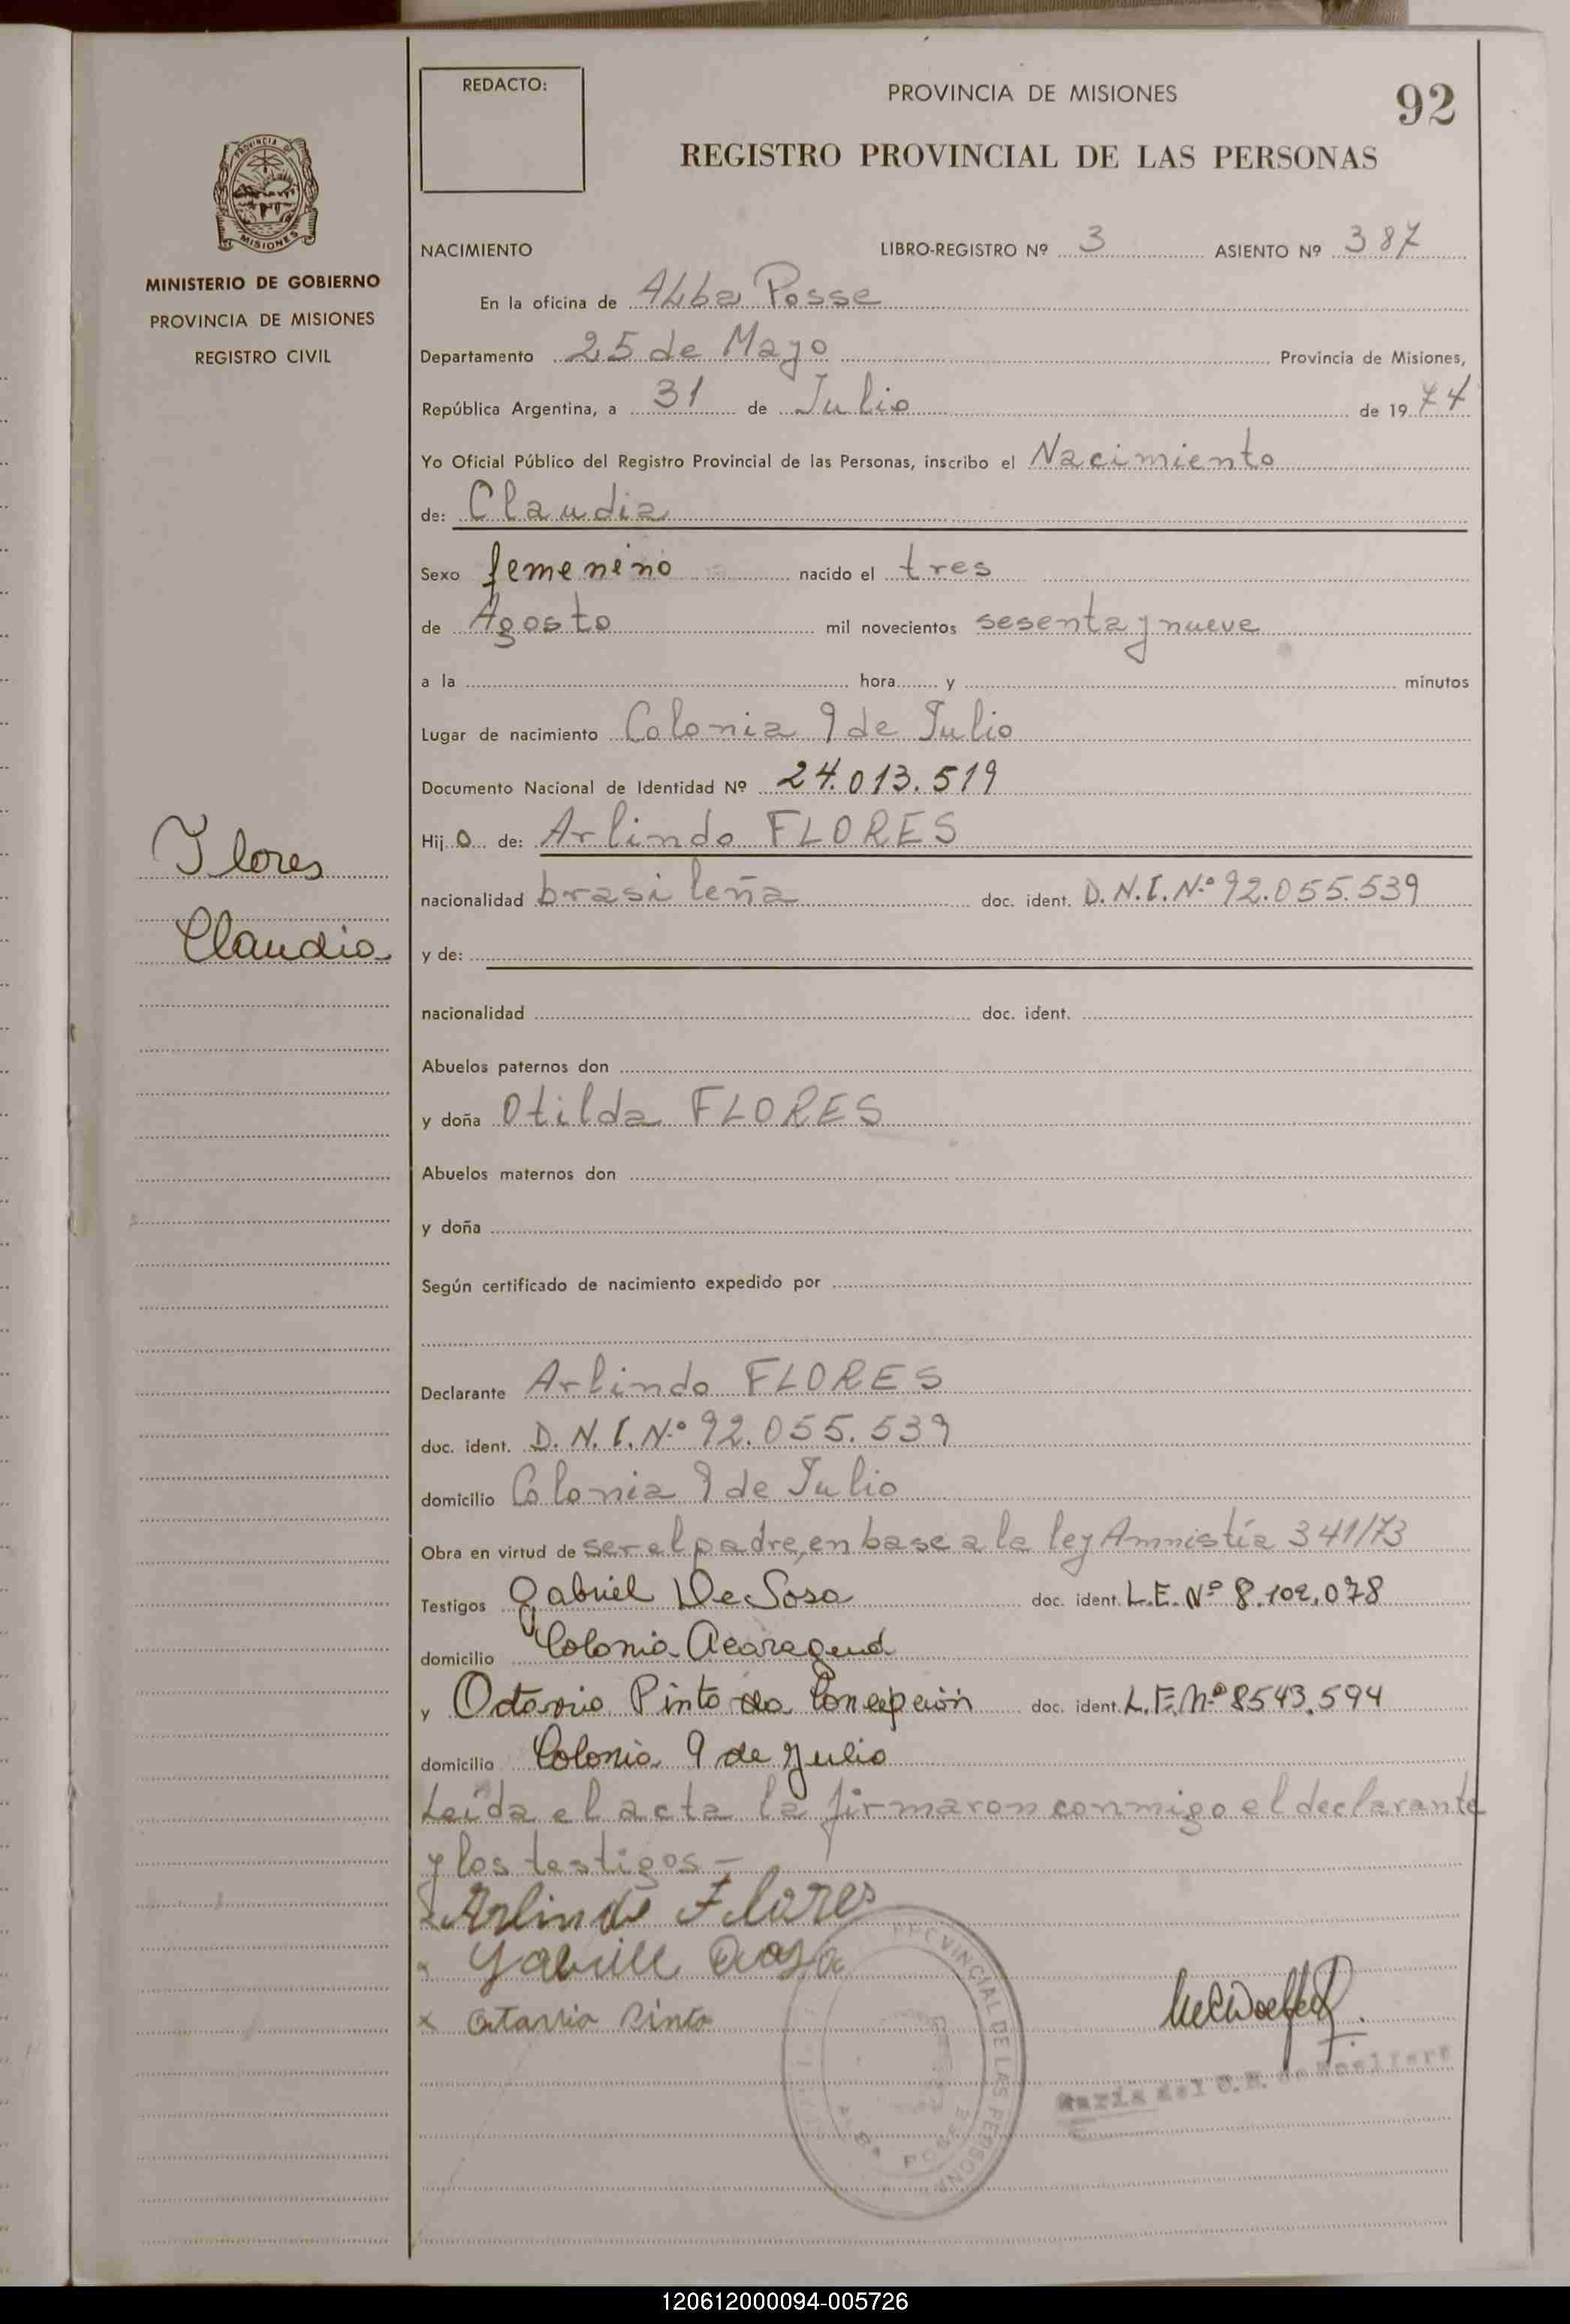 REDACTO:
PROVINCIA DE MISIONES
92
REGISTRO PROVINCIAL DE LAS PERSONAS
PROVINCIA DE
MISIONES
MINISTERIO DE GOBIERNO
PROVINCIA DE MISIONES
REGISTRO CIVIL
NACIMIENTO LIBRO-REGISTRO Nº 3 ASIENTO Nº 387
En la oficina de Alba Posse
Departamento 25 de Mayo Provincia de Misiones,
República Argentina, a 31 de Julio de 1974
Yo Oficial Público del Registro Provincial de las Personas, inscribo el Nacimiento
de: Claudia
Sexo femenino nacido el tres
de Agosto mil novecientos sesenta y nueve
a la hora y minutos
Lugar de nacimiento Colonia 9 de Julio
Documento Nacional de Identidad Nº 24.013.519
Hijo de: Arlindo FLORES
Flores
Claudia
nacionalidad brasileña doc. ident. D.N.I.Nº 92.055.539
y de:
nacionalidad doc. ident.
Abuelos paternos don
y doña Otilda FLORES
Abuelos maternos don
y doña
Según certificado de nacimiento expedido por
Declarante Arlindo FLORES
doc. ident. D.N.I.Nº 92.055.539
domicilio Colonia 9 de Julio
Obra en virtud de ser el padre, en base a la ley Amnistía 341/73
Testigos Gabriel De Sosa doc. ident. L.E. Nº 8.102.078
domicilio Colonia
y Octavio Pinto da Concepción doc. ident. L.E. Nº 8543.594
domicilio Colonia 9 de Julio
Leída el acta la firmaron conmigo el declarante
y los testigos—
x Arlindo Flores
x
x Otavio Pinto
PROVINCIAL DE LAS PERSONAS
ALBA POSSE
María del C.
120612000094-005726